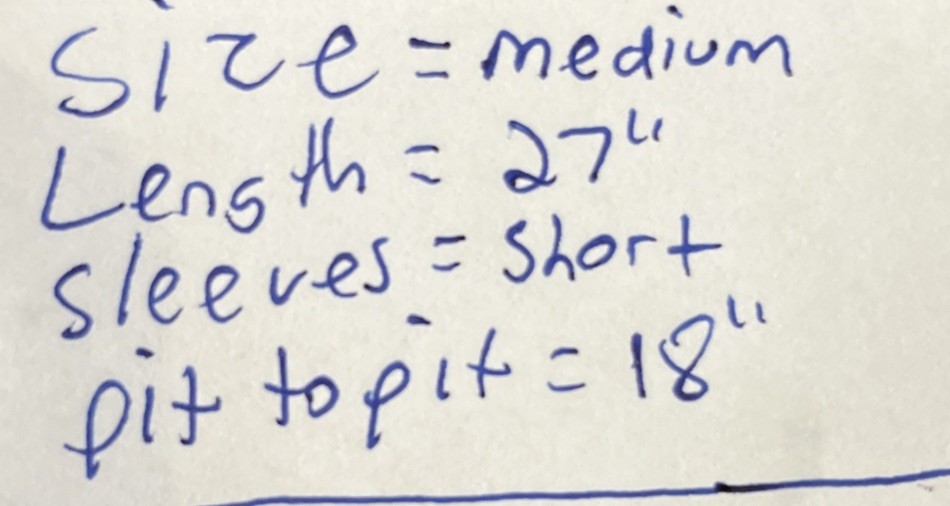 Size = medium
Length = 27"
sleeves = short
pit to pit = 18"